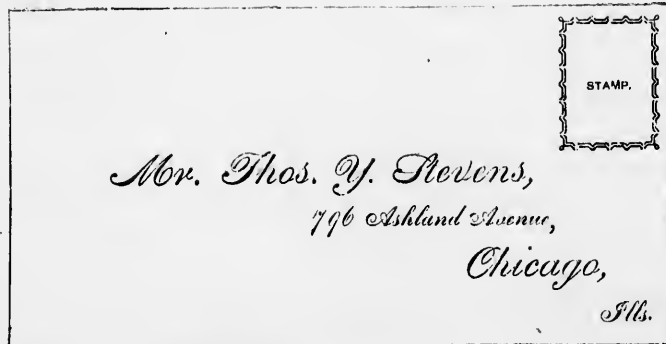 STAMP.
Mr. Thos. Y. Stevens,
796 Ashland Avenue,
Chicago,
Ills.